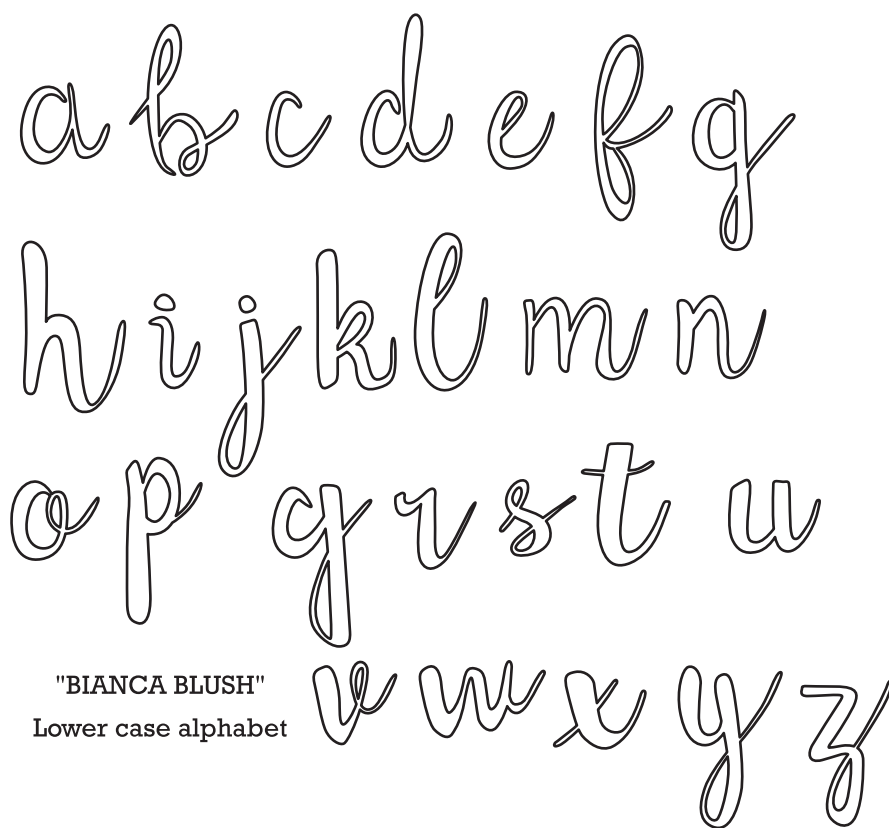 a b c d e f g
h i j k l m n
o p q r s t u
"BIANCA BLUSH"
Lower case alphabet
v w x y z